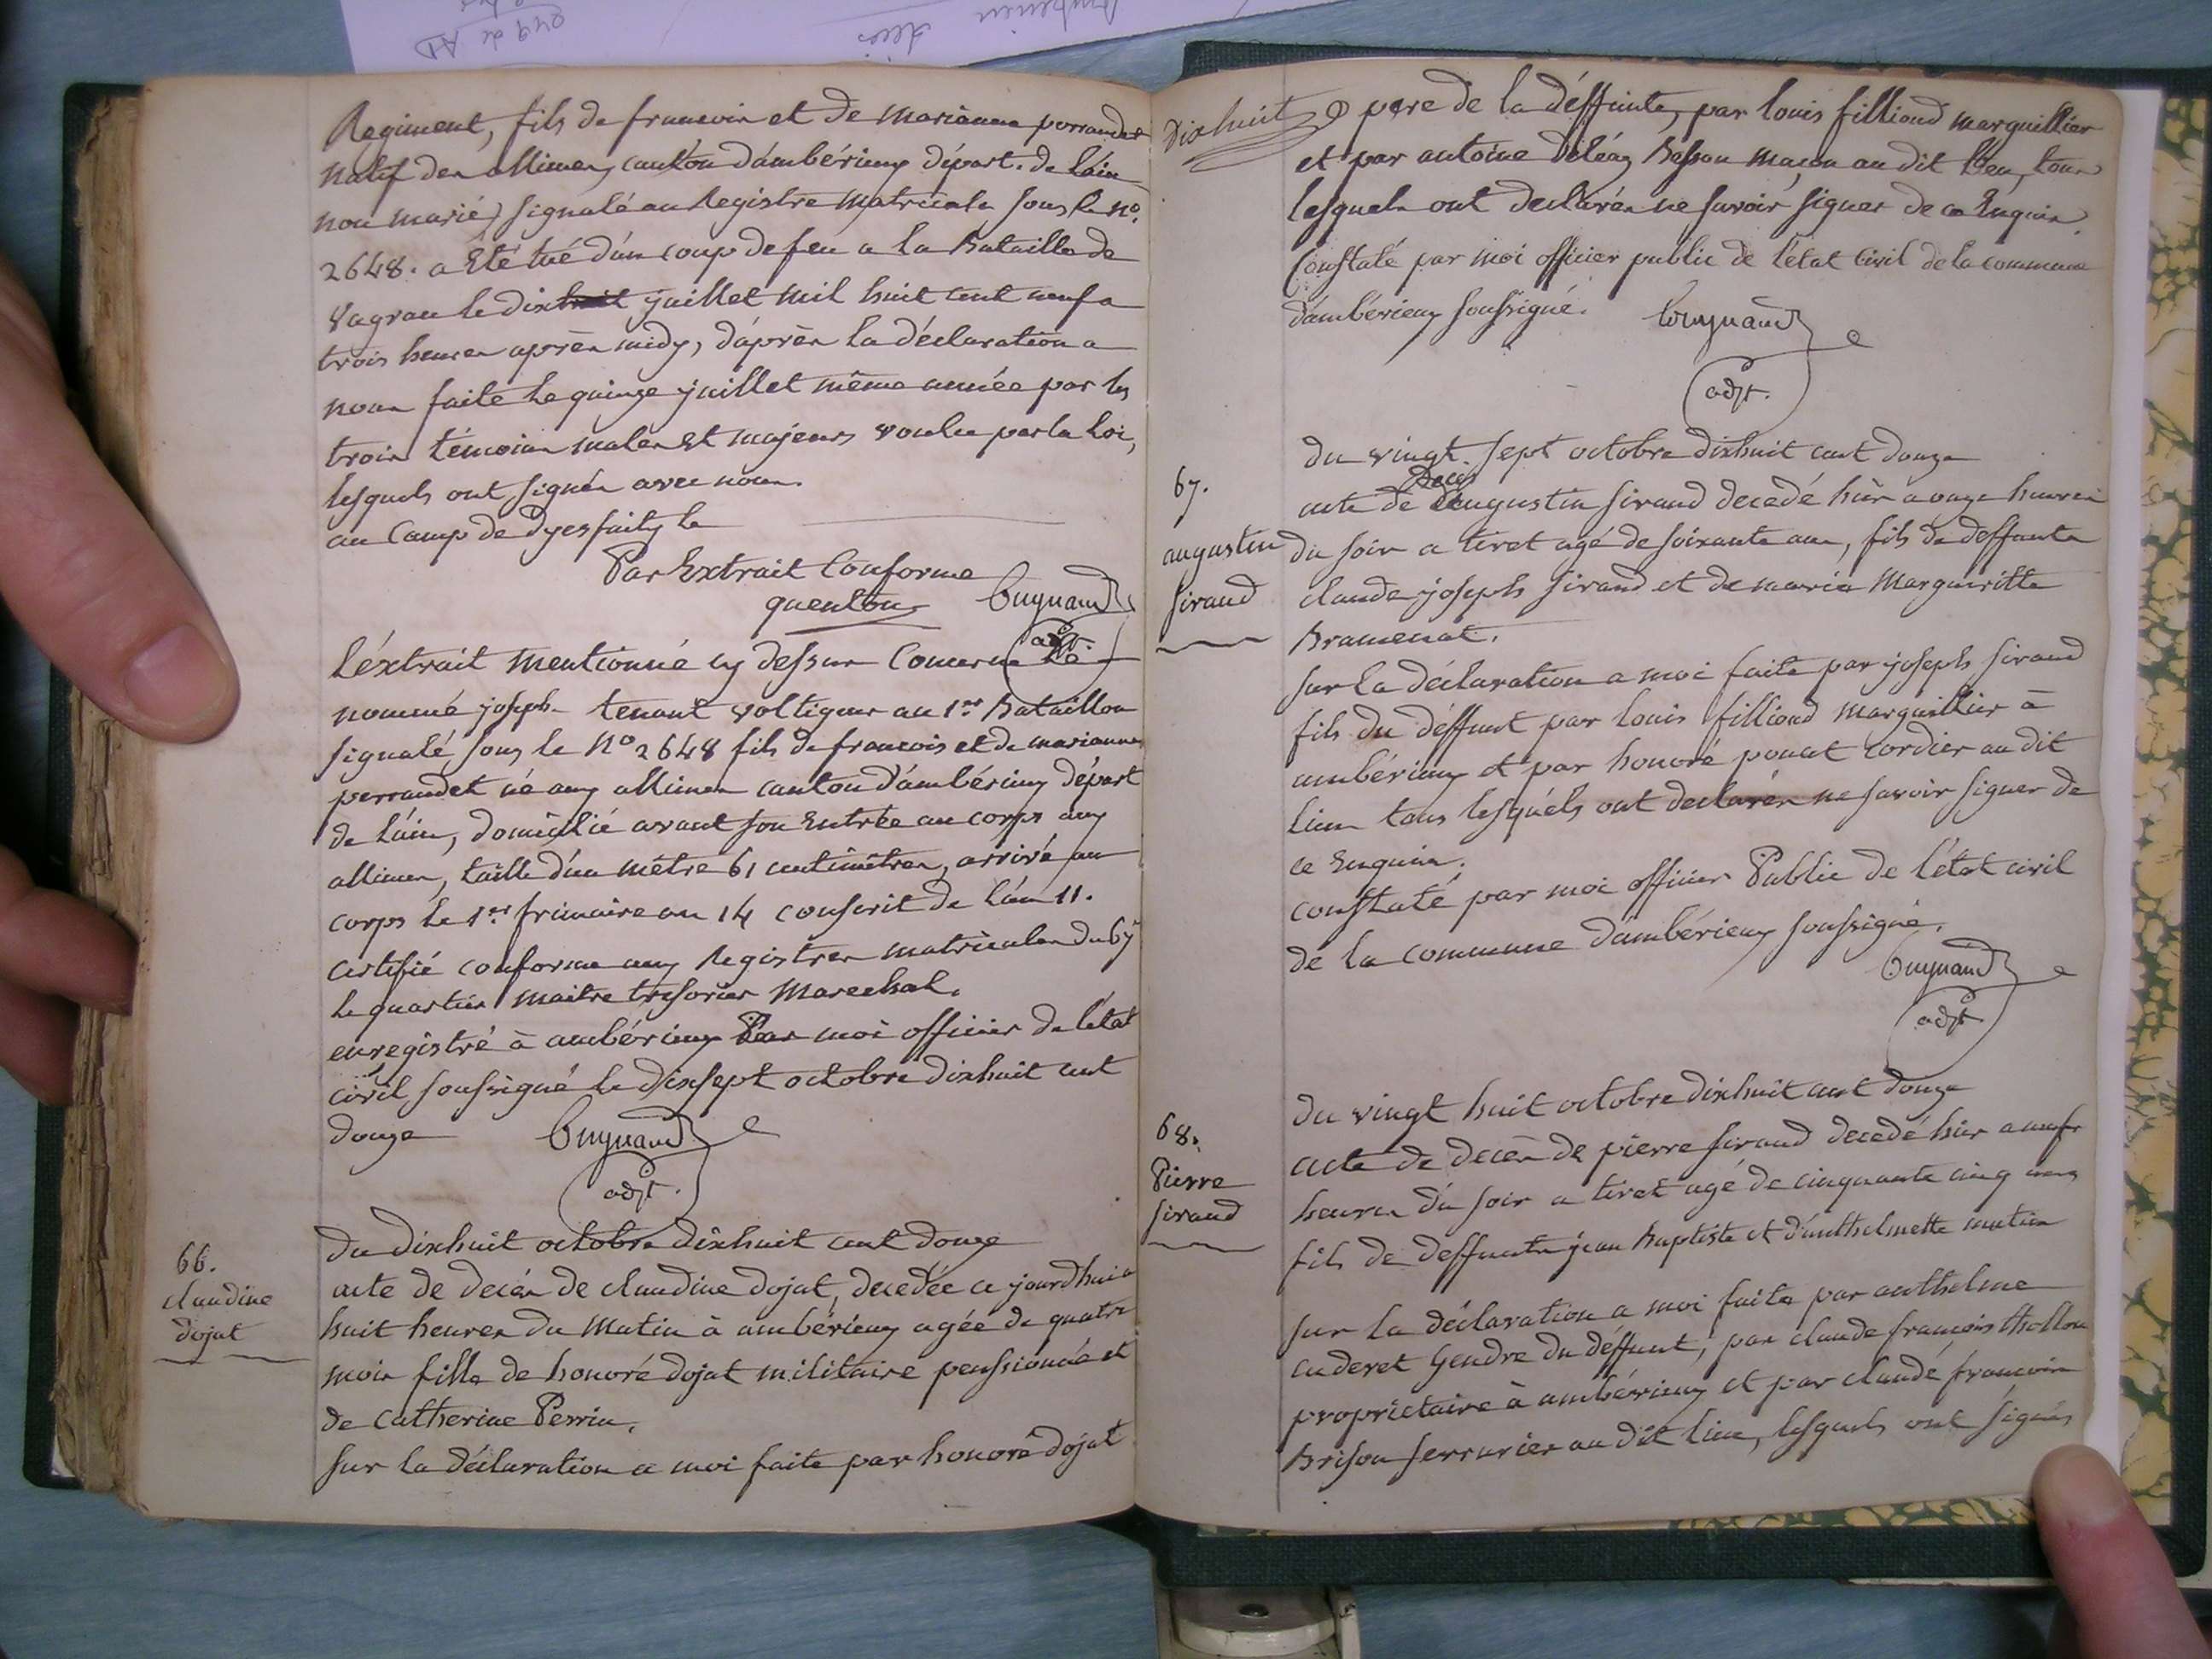 Regiment, fils de francois et de marianne perrandet
natif des allimes, canton d'ambérieux départ. de l'ain
non marié, signalé au Registre Matricule sous le n°.
2648. a été tué d'un coup de feu a la Bataille de
Vagram le dix juillet mil huit cent neuf a
trois heures après midy, d'après la déclaration a
nous faite le quinze juillet même année par les
trois témoins males et majeurs voulu par la loi,
lesquels ont signés avec nous.
au Camp de le
Par Extrait Conforme
quenlou Cuynaud
adjt.
L'éxtrait mentionné cy dessus Concerne le
nommé joseph tenant voltigeur au 1er Bataillon
signalé sous le N° 2648 fils de francois et de marianne
perrandet né aux allimes canton d'ambérieux départ
de l'ain, domicilié avant son Entrée au corps aux
allimes, taille d'un mètre 61 centimètres, arrivé au
corps le 1er frimaire an 14 conscrit de l'an 11.
Certifié conforme aux Registres matricules du 67
le quartier maitre trésorier Marechal.
enregistré à ambérieux Par moi officier de l'état
civil soussigné le dixsept octobre dixhuit cent
douze Cuynaud
adjt.
66.
claudine
dojat
du dixhuit octobre dixhuit cent douze
acte de decès de claudine dojat, decedée ce jourd'hui a
huit heures du Matin à ambérieux agée de quatre
mois fille de honoré dojat militaire penssionné et
de Catherine Perrin.
sur la déclaration a moi faite par honoré dojat
Dixhuit
père de la déffunte, par louis filliond marguillier
et par antoine Déléaz Besson maçon au dit lieu, tous
lesquels ont declarés ne savoir signer de ce Enquis.
Constaté par moi officier public de l'état Civil de la commune
d'ambérieux soussigné. Cuynaud
adjt.
67.
augustin
sirand
du vingt sept octobre dixhuit cent douze
Decès
acte de augustin sirand decedé hièr a onze heures
du soir a tiret agé de soixante ans, fils de deffunts
claude joseph sirand et de marie Margueritte
Bramenat.
sur la déclaration a moi faite par joseph sirand
fils du déffunt par louis filliond marguillier à
ambérieux et par honoré ponat cordier au dit
lieu tous lesquels ont declarés ne savoir signer de
ce Enquis.
constaté par moi officier Public de l'état civil
de la commune d'ambérieux soussigné.
Cuynaud
adjt.
68.
Pierre
sirand
du vingt huit octobre dixhuit cent douze
acte de decès de pierre sirand decedé hièr a neuf
heures du soir a tiret agé de cinquante cinq ans
fils de deffunts jean Baptiste et d'anthelmette mutin
sur la déclaration a moi faite par anthelme
cuderet Gendre du déffunt, par claude françois thollon
propriétaire à ambérieux et par claude françois
Brison serrurier au dit lieu, lesquels ont signés